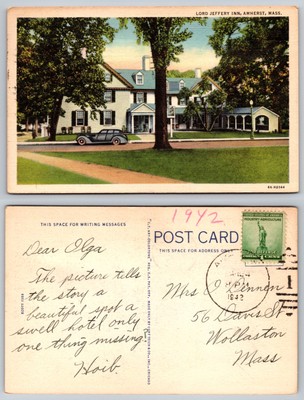 LORD JEFFERY INN, AMHERST, MASS.
1942
THIS SPACE FOR WRITING MESSAGES
THIS SPACE FOR ADDRESS ONLY
POST CARD
Dear Olga
The picture tells
the story a
beautiful spot a
swell hotel only
one thing missing!
Hoib.
1942
Mrs O Lennon
56 Davis St
Wollaston
Mass